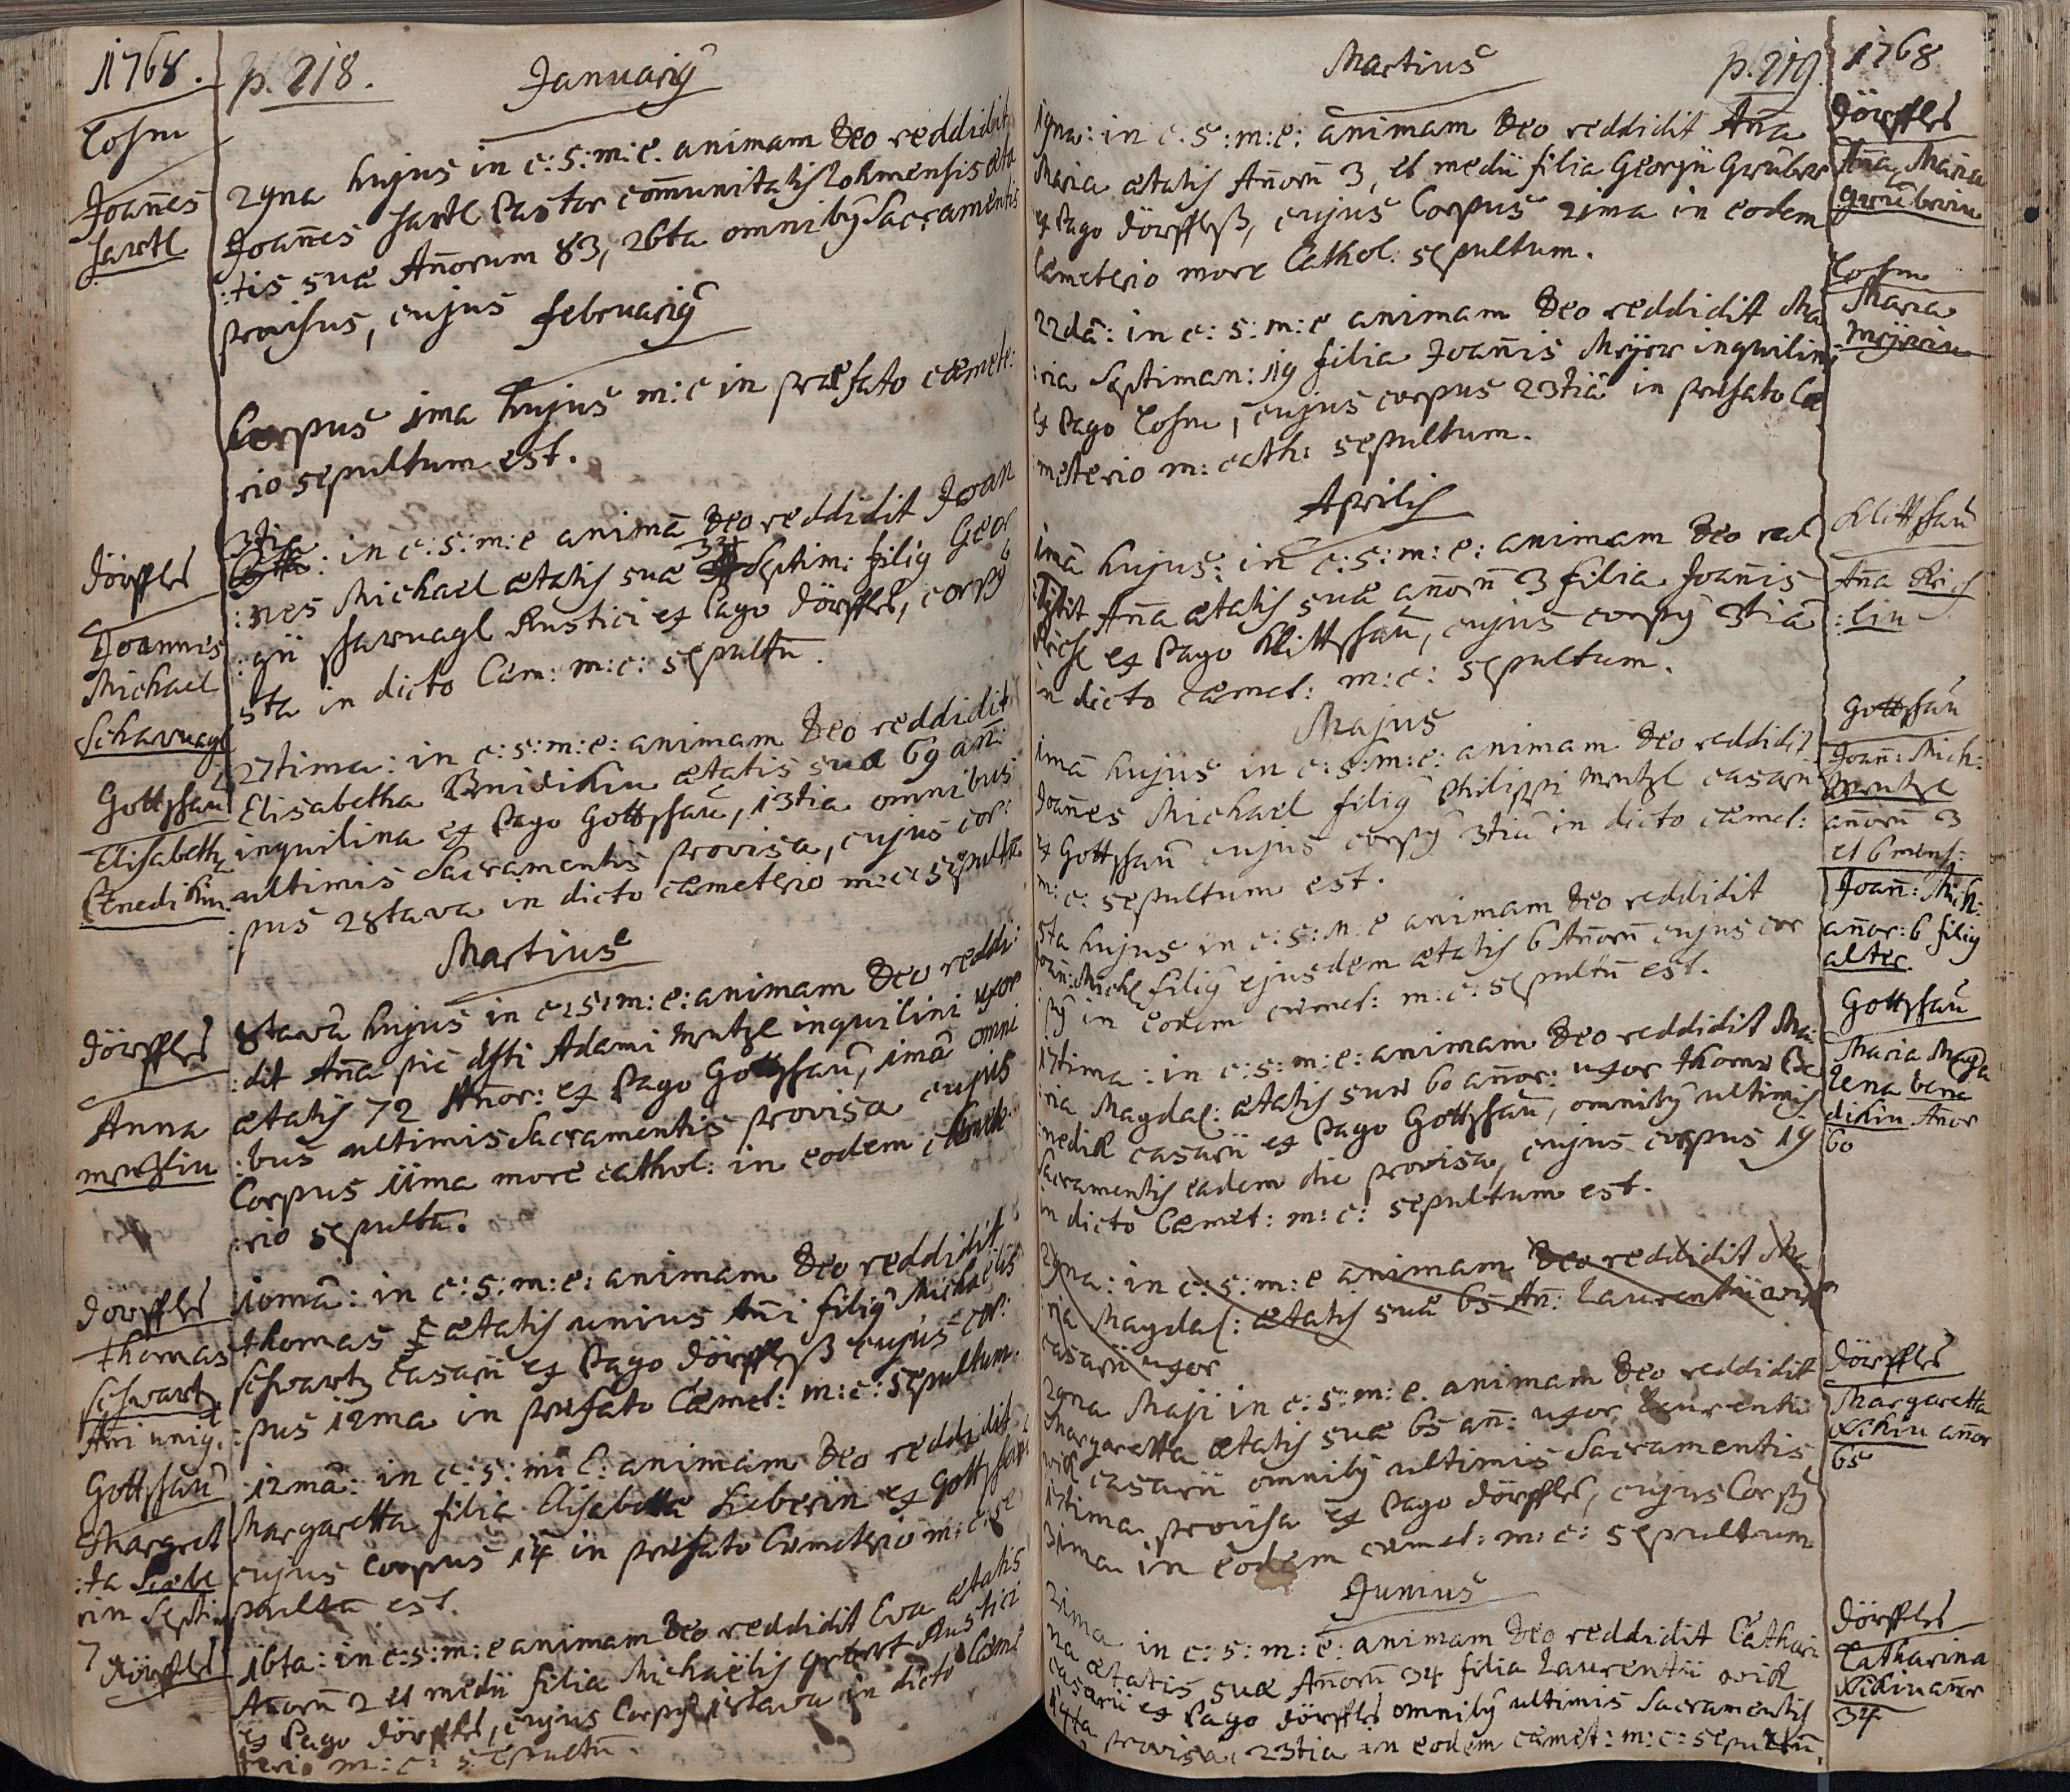 1768.
p. 218.
Januarig
Losm
Joannes
Hartl
29na hujus in c: s: m: e. animam Deo reddidit
Joannes Hartl Pastor communitatis Lohmensis æta
:tis suæ Añorum 83, 26ta omnibg Sacramentis
provisus, cujus
Februarig
Corpus 1ma hujus m: c in præfato cæmete:
:rio sepultum est.
Dörffles
Joannes
Michael
Scharnagl
3tia
: in c: s: m: e animā Deo reddidit Joan
:nes Michael ætatis suæ 32 Septim: filig Geor
:gii Scharnagl Rustici ex Pago Dörffles, corpg
5ta in dicto Cæm: m: c: sepultū.
Gottschau
Elisabeth
Benedikin
27tima: in c: s: m: e: animam Deo reddidit
Elisabetha Benidikin ætatis suæ 69 añ:
inquilina ex Pago Gottschau, 13tia omnibus
ultimis Sacramentis provisa, cujus cor:
:pus 28tava in dicto cæmeterio m: c: sepultū
Martius
Dörffles
Anna
Mentzlin
8tavā hujus in c: s: m: e: animam Deo reddi:
:dit Aña piè dfti Adami Mentzl inquilini uxor
ætatis 72 Añor: ex Pago Gottschau, 1mā omni
:bus ultimis Sacramentis provisa cujus
Corpus 11ma more cathol: in eodem cæmete:
:rio sepultū.
Dörffles
Thomas
Schwartz
Añi unig.
10mā: in c: s: m: e: animam Deo reddidit
Thomas ætatis unius Añi filig Michaëlis
Schwartz Casarii ex Pago Dörfflß cujus cor:
:pus 12ma in præfato Cæmet: m: c: sepultum.
Gottschau
Margret
:ta Liebe
rin Septim
7
12mā: in c: s: m: e: animam Deo reddidit
Margaretta filia Elisabettæ Lieberin ex Gottschau
cujus corpus 14 in præfato Cæmeterio m: c: se
pultū est.
Dörffles
16ta: in c: s: m: e animam Deo reddidit Eva ætatis
Añorū 2 et medii filia Michaëlis Rustici
ex Pago Dörffles, cujus Corpg 18tava in dicto Cæme
terio m: c: sepultū.
Martius
p. 219
1768
Dörffles
Aña Maria
Gruberin
19na: in c: s: m: e: animam Deo reddidit Aña
Maria ætatis Añorū 3, et medii filia Georgii Gruber
ex Pago Dörfflß, cujus Corpus 21ma in eodem
Cæmeterio more Cathol: sepultum.
Losm
Maria
Meÿerin
22dā: in c: s: m: e animam Deo reddidit Ma
:ria Septiman: 19 filia Joañis Meÿer inquilini
ex Pago Losm, cujus corpus 23tiā in præfato Cæ
meterio m: cath: sepultum.
Aprilis
Klittschau
Aña Rich
:lin
1mā hujus: in c: s: m: e: animam Deo red
:didit Aña ætatis suæ añorū 3 filia Joañis
Richl ex Pago Klittschau, cujus corpg 3tiā
in dicto cæmet: m: c: sepultum.
Majus
Gottschau
Joañ: Mich:
Mentzl
añorū 3
et 6 mens:
1mā hujus in c: s: m: e: animam Deo reddidit
Joañes Michael filig Philippi Mentzl casarii
ex Gottschau cujus corpg 3tiā in dicto cæmet:
m: c: sepultum est.
Joañ: Mich:
añor: 6 filig
alter.
5ta hujus in c: s: m: e animam Deo reddidit
Joañ: Michl filig ejusdem ætatis 6 Añorū cujus cor
pg in eodem cæmet: m: c: sepultū est.
Gottschau
Maria Magda
lena bene
dikin Añor
60
17tima: in c: s: m: e: animam Deo reddidit Ma:
:ria Magdal: ætatis suæ 60 añor: uxor Thomæ Be
:nedik casarii ex Pago Gottschau, omnibg ultimis
Sacramentis eadem die provisa, cujus corpus 19
in dicto Cæmet: m: c: sepultum est.
29na: in c: s: m: e animam Deo reddidit Ma
:ria Magdal: ætatis suæ 65 Añ: Laurentii wik
casarii uxor
Dörffles
Margaretta
Wikin añor
65
29na Maji in c: s: m: e. animam Deo reddidit
Margaretta ætatis suæ 65 añ: uxor Laurentii
wik casarii omnibg ultimis Sacramentis
17tima provisa ex Pago Dörffles, cujus Corpg
31ma in eodem cæmet: m: c: sepultum
Junius
Dörffles
Catharina
Wikin añor
34
21ma in c: s: m: e: animam Deo reddidit Cathari
na ætatis suæ Añorū 34 filia Laurentii wik
casarii ex Pago Dörffles omnibg ultimis Sacramentis
19ta provisa, 23tia in eodem cæmet: m: c: sepultū.